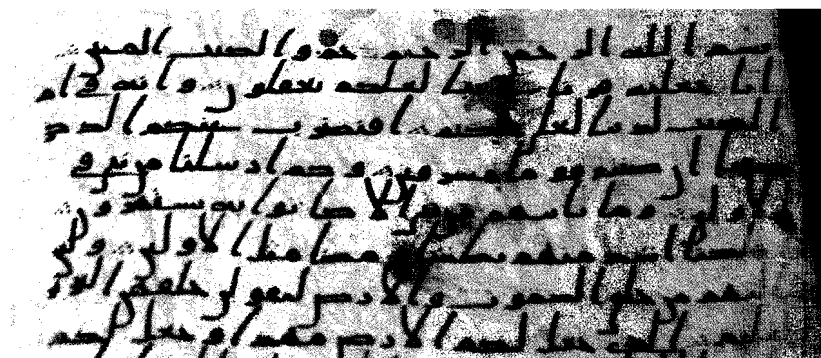 بسم الله الرحمن الرحيم حم والكتب المبين
انا جعلنه قرنا عربيا لعلكم تعقلون وانه في ام
الكتب لدينا لعلي حكيم افنضرب عنكم الذكر
صفحا ان كنتم قوما مسرفين وكم ارسلنا من نبي في
الاولين وما ياتيهم من نبي الا كانوا به يستهزون
فاهلكنا اشد منهم بطشا ومضى مثل الاولين ولئن
سالتهم من خلق السموت والارض ليقولن خلقهن العز
يز العليم الذي جعل لكم الارض مهدا وجعل لكم